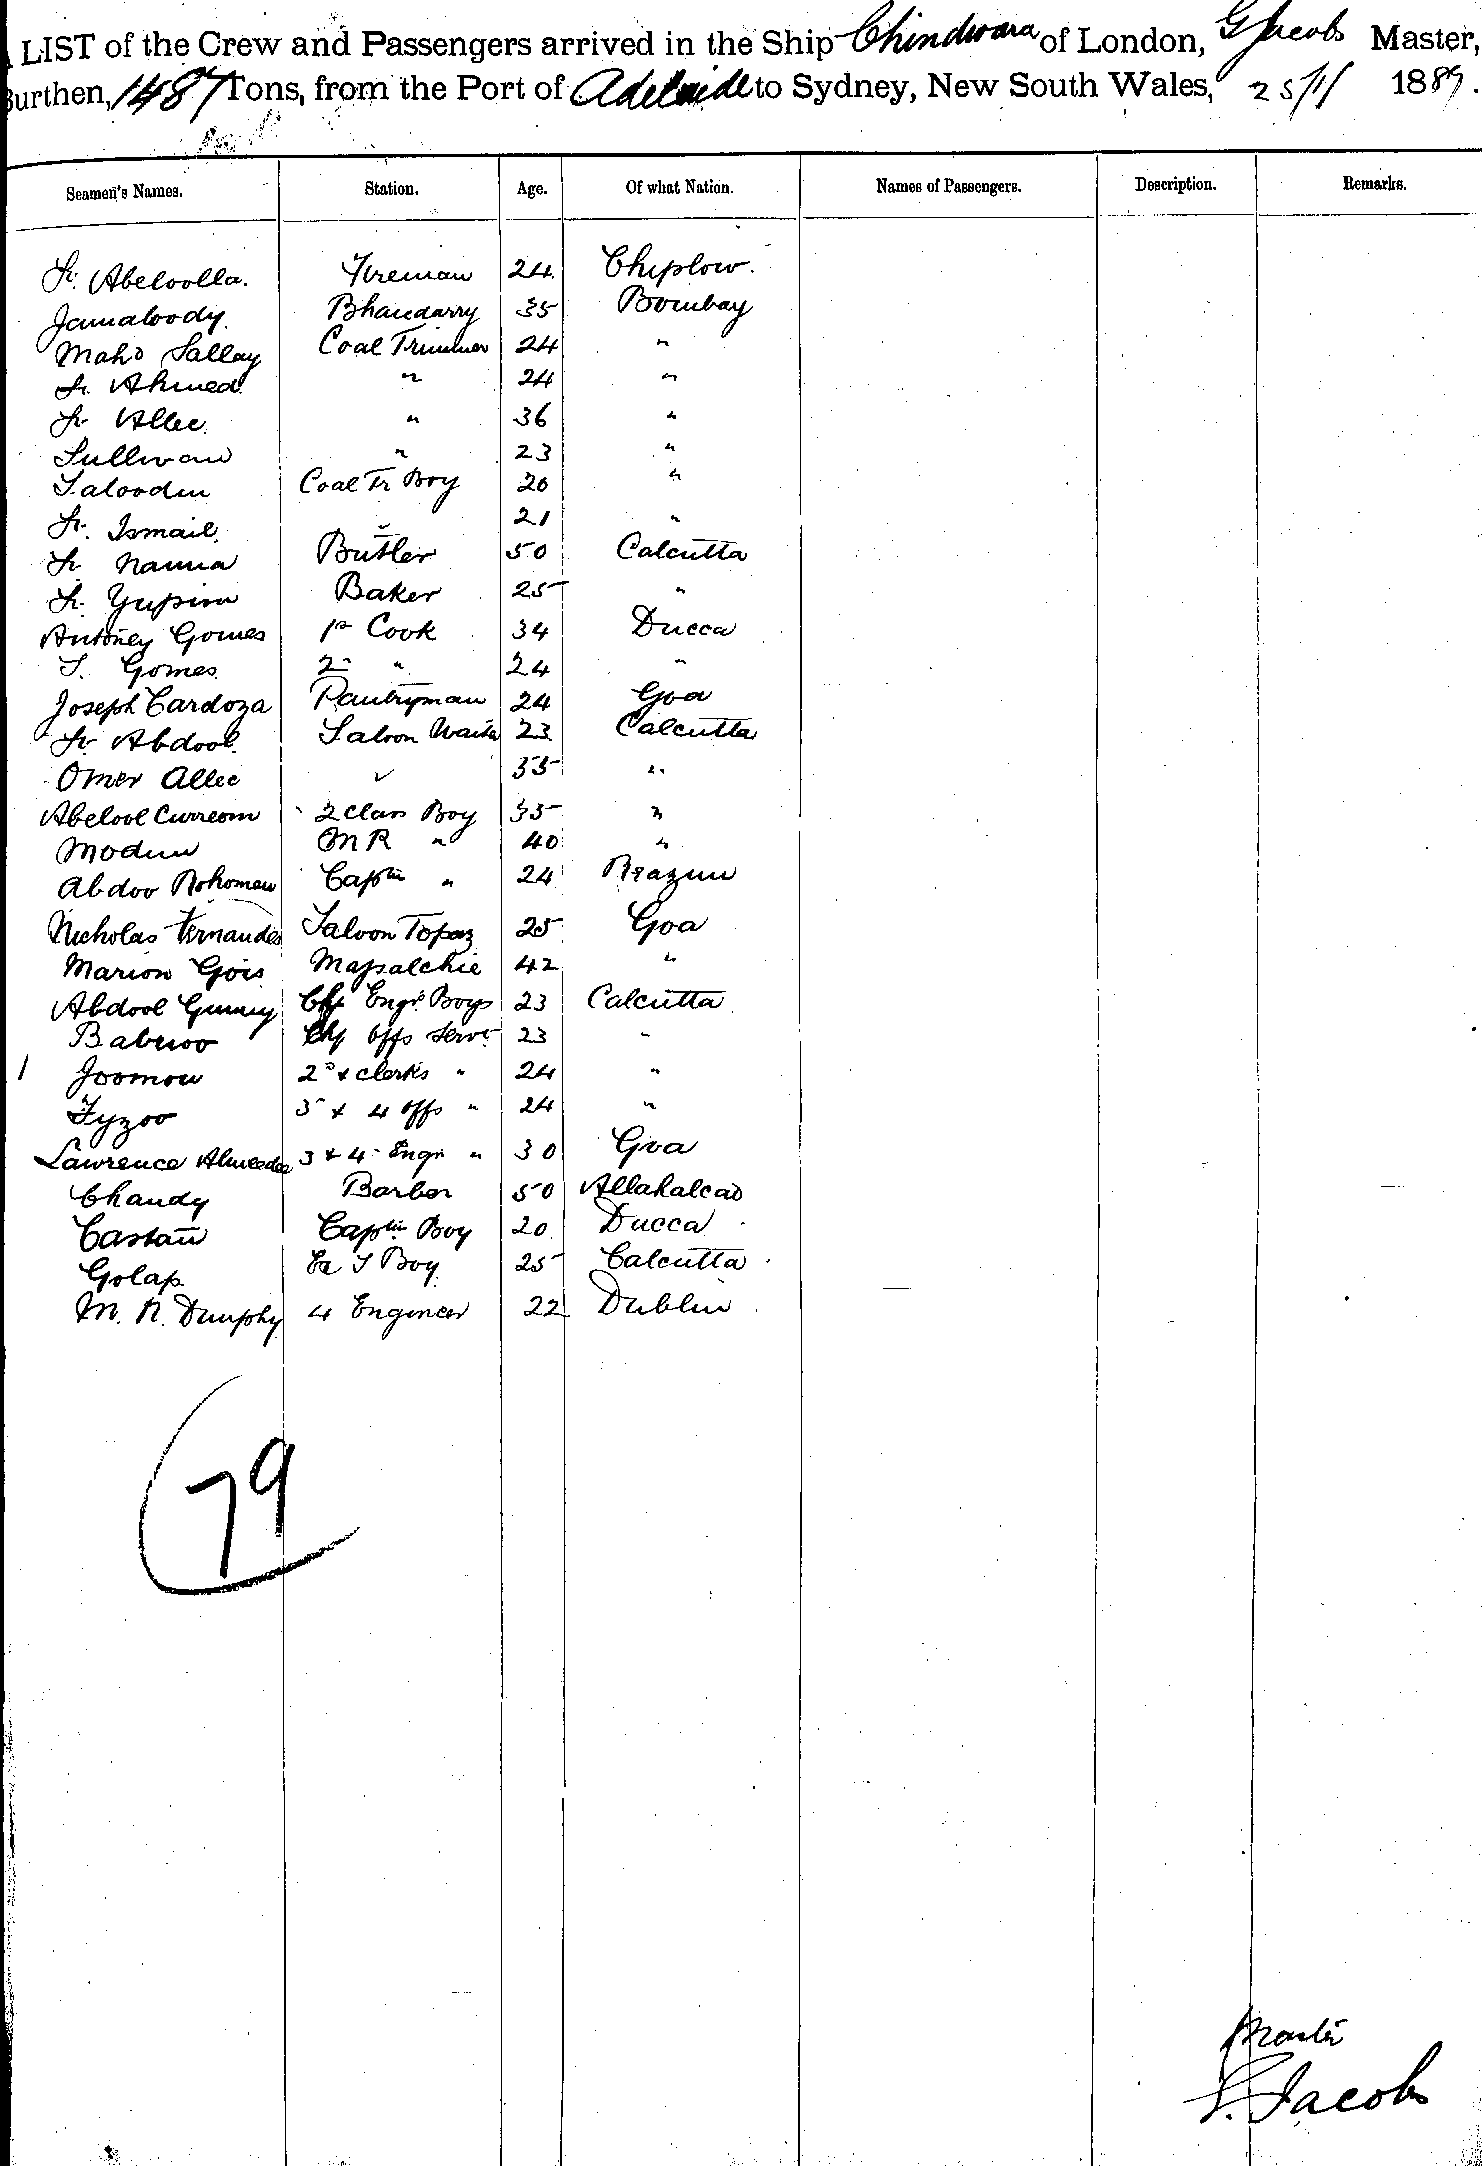 A LIST of the Crew and Passengers arrived in the Ship Chindwara of London, G Jacobs Master,
Burthen, 1487 Tons, from the Port of Adelaide to Sydney, New South Wales, 25/11 1889.
Seamen's Names. Station. Age. Of what Nation. Names of Passengers. Description. Remarks.
Sk. Abeloolla. Fireman 24 Chiplow.
Jamaloody. Bhandarry 35 Bombay
Mahd Sallay Coal Trimmer 24 "
Sk. Ahmed. " 24 "
Sk Allee. " 36 "
Sulliman " 23 "
Saloodin Coal Tr Boy 20 "
Sk. Ismail. " 21 "
Sk Nanna Butler 50 Calcutta
Sk. Baker 25 "
Antoney Gomes 1st Cook 34 Ducca
S. Gomes. 2nd " 24 "
Joseph Cardoza Pantryman 24 Goa
Sk Abdool. Saloon Waiter 23 Calcutta
Omer Allee " 35 "
Abelool Curreem 2 Class Boy 35 "
Modun M R " 40 "
Abdoo Rohoman Captn " 24
Nicholas Fernandes Saloon Topaz 25 Goa
Marion Gois Massalchie 42 "
Abdool Gunny Chf Engr. Boys 23 Calcutta
Babwoo Chf Offs Servt 23 "
Joomon 2nd & Clerks " 24 "
Fyzoo 3 & 4 Offs " 24 "
Lawrence Almeeda 3 & 4 Engr " 30 Goa
Chandy Barber 50 Allahabad
Castan Captn Boy 20 Ducca
Golap Boy 25 Calcutta
M. N. Dunphy 4 Engineer 22 Dublin
79
Master
G. Jacobs